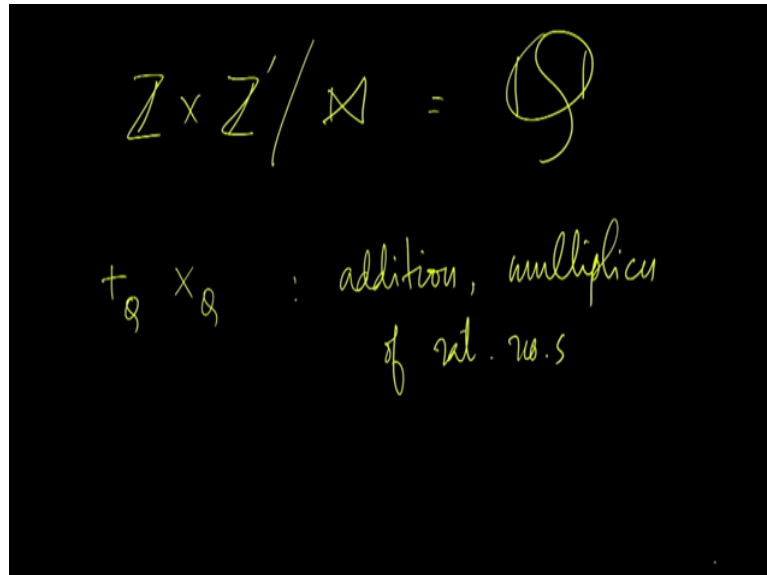 ℤ × ℤ' / ⋈ = ℚ
+_Q ×_Q : addition, multiplicn
of rat. no.s